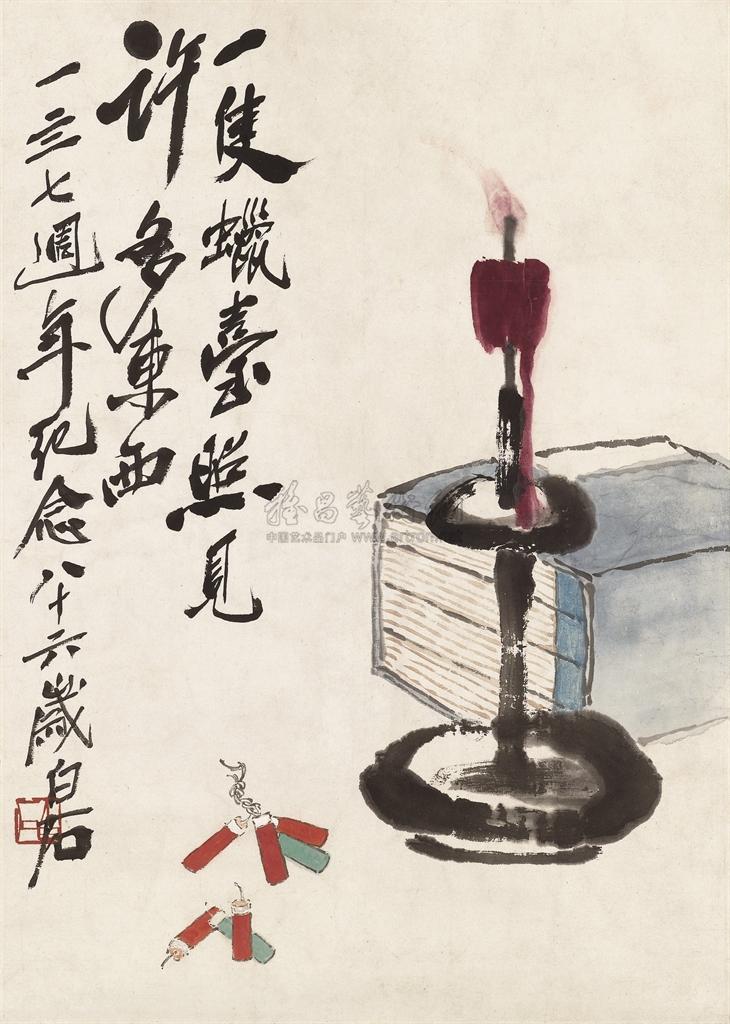 一隻蠟臺照見
許多東西
一三七週年紀念八十六歲白石
雅昌藝術
中国艺术品门户 www.artron